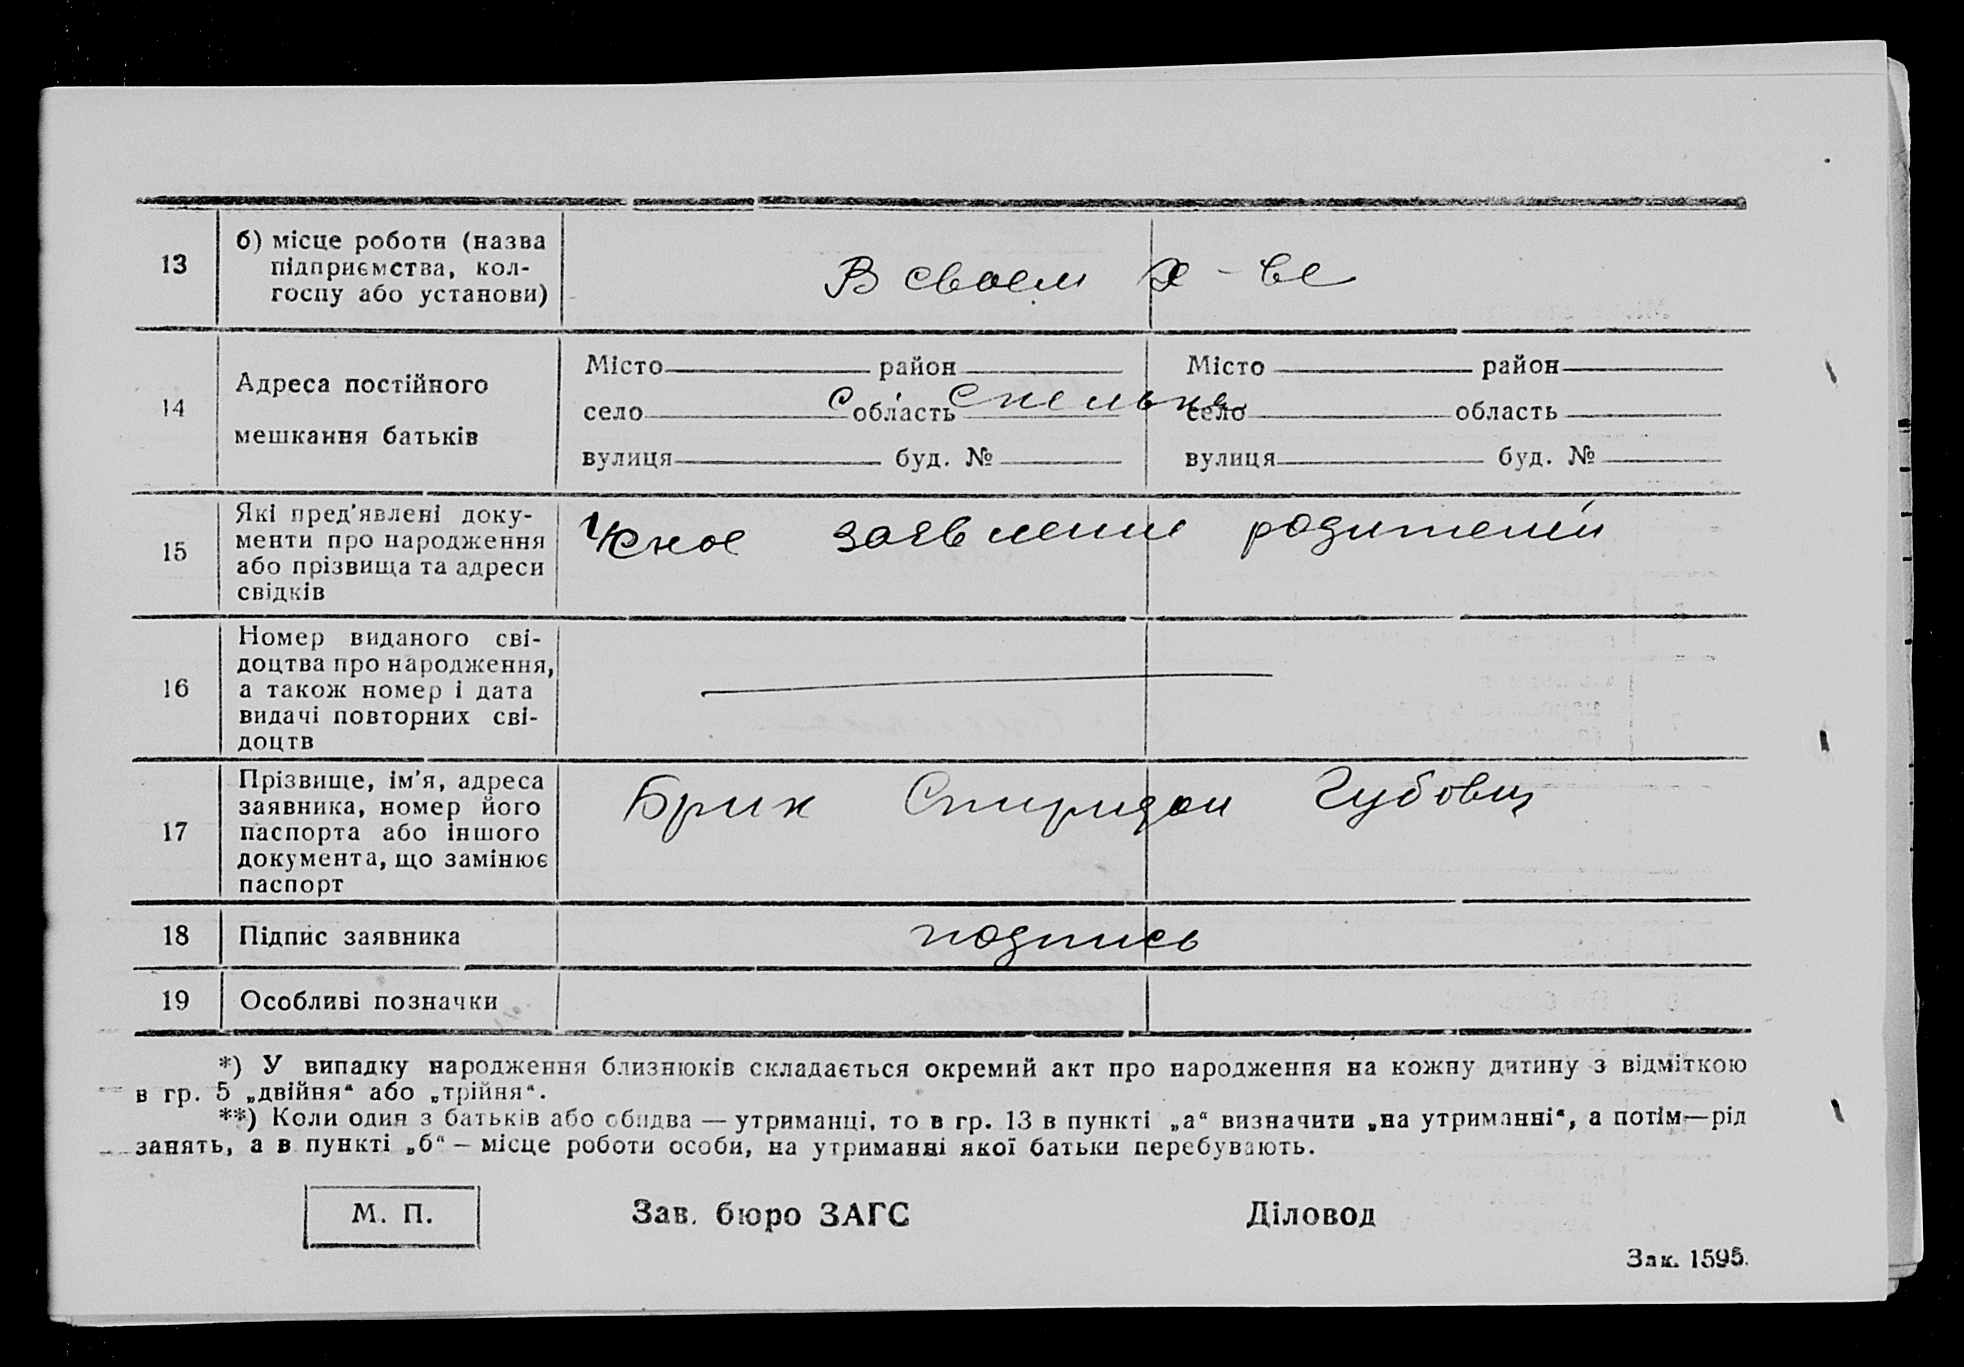 13
б) місце роботи (назва
підприємства, кол-
госпу або установи)
В своем х-ве
14
Адреса постійного
мешкання батьків
Місто район
село область
вулиця буд. №
с.
Місто район
село область
вулиця буд. №
15
Які пред'явлені доку-
менти про народження
або прізвища та адреси
свідків
заявление родителей
16
Номер виданого сві-
доцтва про народження,
а також номер і дата
видачі повторних сві-
доцтв
17
Прізвище, ім'я, адреса
заявника, номер його
паспорта або іншого
документа, що замінює
паспорт
Брик Спиридон
18
Підпис заявника
подпись
19
Особливі позначки
*) У випадку народження близнюків складається окремий акт про народження на кожну дитину з відміткою
в гр. 5 „двійня“ або „трійня“.
**) Коли один з батьків або обидва — утриманці, то в гр. 13 в пункті „а“ визначити „на утриманні“, а потім—рід
занять, а в пункті „б“ — місце роботи особи, на утриманні якої батьки перебувають.
М. П.
Зав. бюро ЗАГС
Діловод
Зак. 1595.